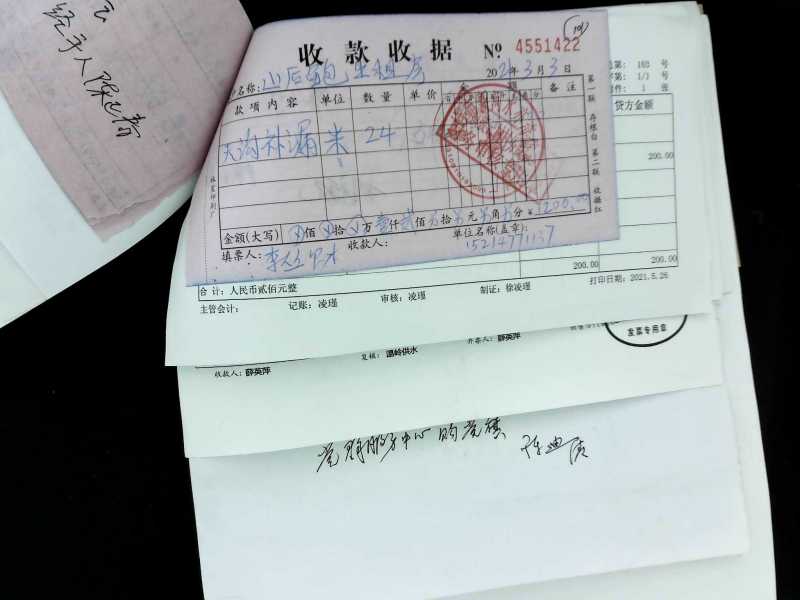 经手人
收款收据 № 4551422
山后 出租房 202 年3月3日
款项内容 单位 数量 单价 金额 备注
天沟补漏 米 24
第一联 存根白 第二联 收据红
金额(大写) 佰 拾 万壹仟贰佰 拾 元 角 分 ¥1200.00
填票人: 收款人: 单位名称(盖章):
15214771137
总第: 163 号
1/1 号
附件: 1 张
贷方金额
200.00
200.00 200.00
合计: 人民币贰佰元整 打印日期: 2021.5.26
主管会计: 记账: 凌瑾 审核: 凌瑾 制证: 徐凌瑾
收款人: 薛英萍 复核: 温岭供水 开票人: 薛英萍
发票专用章
党群服务中心的党旗